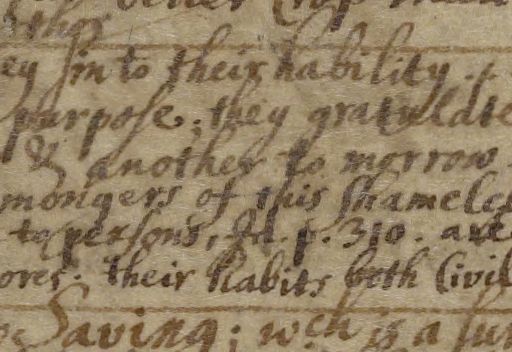 ey sin to their hability.
purpose, they gratulate
& another to morrow
mongers of this shameles
to persons, Id. p. 310. are
ores. their habits both Civil
Saving; wch is a